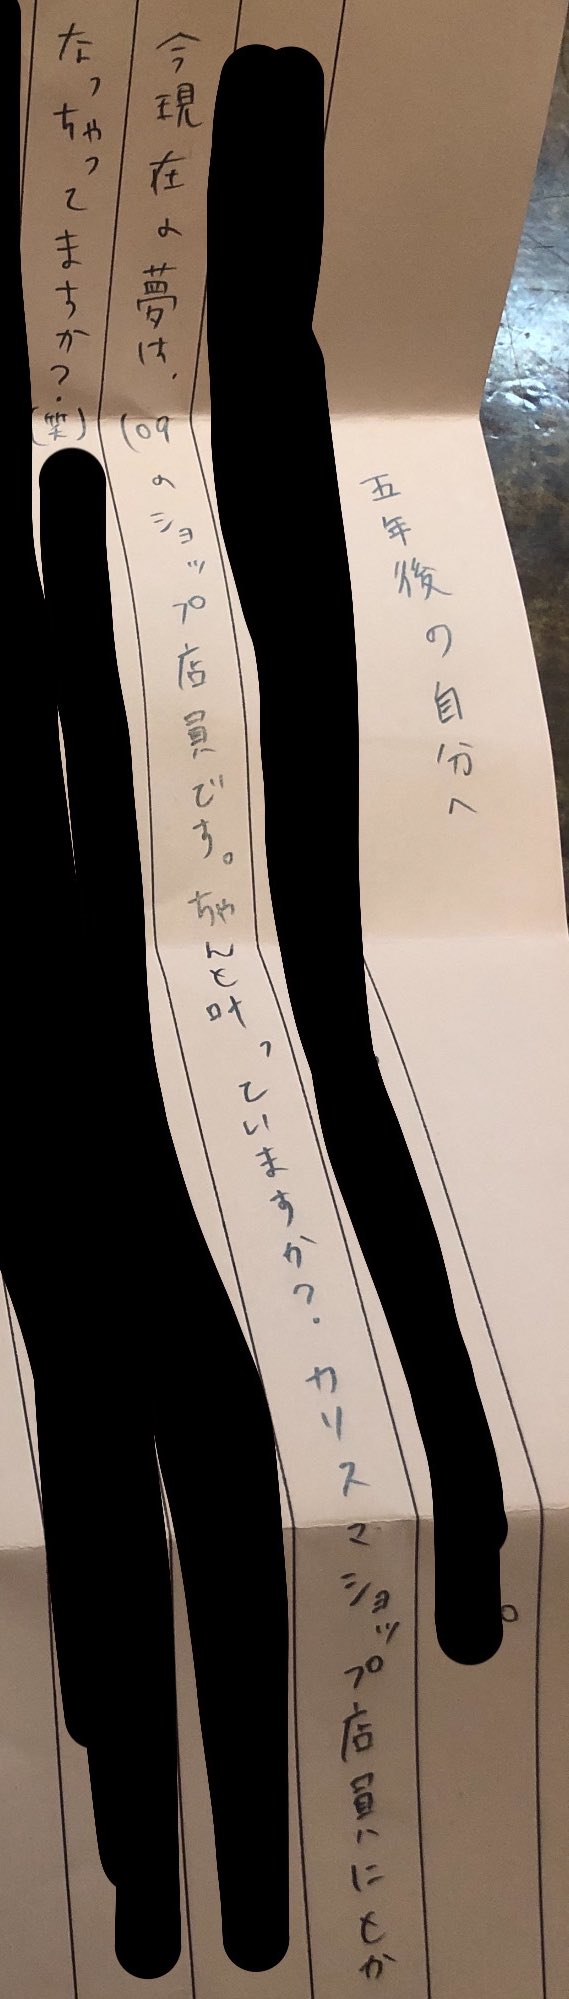 五年後の自分へ
今現在の夢は、109のショップ店員です。ちゃんと叶っていますか?カリスマショップ店員にとか
なっちゃってますか?(笑)